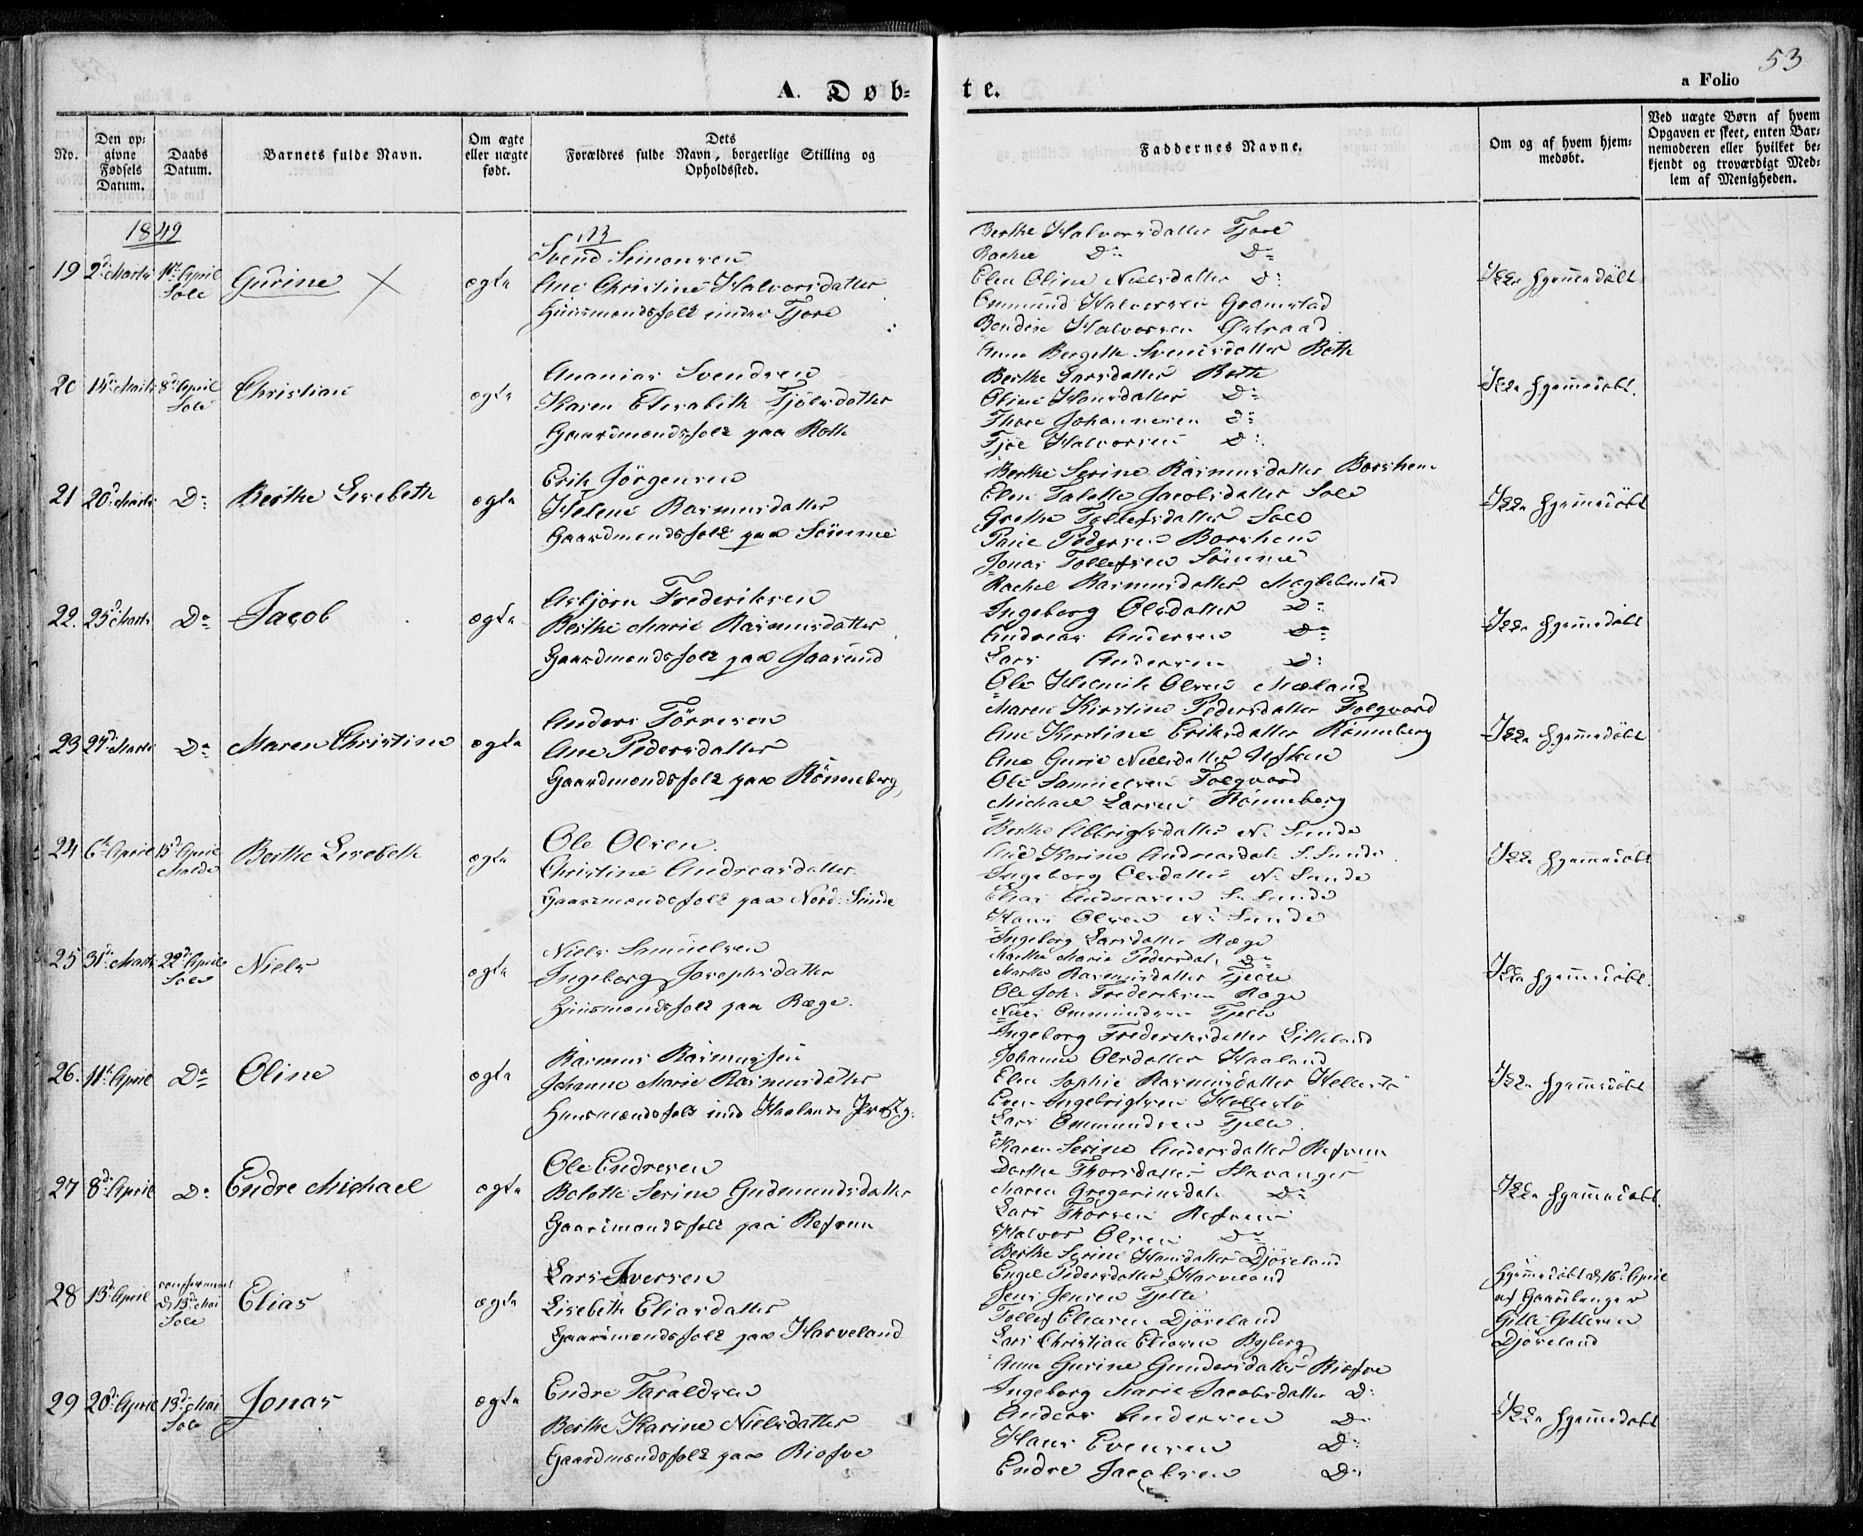 53
A. Døb-
te.
a Folio
No.
Den op-
givne
Fødsels
Datum.
Daabs
Datum.
Barnets fulde Navn.
Om ægte
eller uægte
født.
Dets
Forældres fulde Navn, borgerlige Stilling og
Opholdssted.
Faddernes Navne.
Om og af hvem hjem-
medøbt.
Ved uægte Børn af hvem
Opgaven er skeet, enten Bar-
nemoderen eller hvilket be-
kjendt og troværdigt Med-
lem af Menigheden.
1849
19 2d Marts 1ste April
Sole
Gurine
ægte
Svend Simonsen
Ane Christine Halvorsdatter
Huusmandsfolk under Tjore
Berthe Halvorsdatter Tjore
Rachel Do Do
Elen Oline Nielsdatter Do
Ommund Halvorsen Grannstad
Bendix Halvorsen Østraad
Ikke hjemmedøbt
20 14d Marts 8d April
Sole
Christian
ægte
Ananias Svendsen
Karen Elisabeth Tjölsdatter
Gaardmandsfolk paa Roth
Anna Bergitte Svendsdatter Roth
Berthe Larsdatter Roth
Oline Hansdatter Do
Thore Johannesen Do
Tjöl Halvorsen Do
Ikke hjemmedøbt.
21 20d Marts Do
Berthe Lisebeth
ægte
Erik Jörgensen
Helene Rasmusdatter
Gaardmandsfolk paa Sömme
Berthe Serine Rasmusdatter Borshem
Elen Talette Jacobsdatter Sole
Grethe Tollefsdatter Sole
Paul Pedersen Borshem
Jonas Tollefsen Sömme
Ikke hjemmedøbt
22. 25d Marts Do
Jacob
ægte
Asbjörn Frederiksen
Berthe Marie Rasmusdatter
Gaardmandsfolk paa Jaasund
Rachel Rasmusdatter Meglebustad
Ingeborg Olsdatter Do
Andreas Andersen Do
Lars Andersen Do
Ole Helmik Olsen Mæland
Ikke hjemmedøbt
23 27d Marts Do
Maren Christine
ægte
Anders Törresen
Ane Pedersdatter
Gaardmandsfolk paa Rönneberg
Maren Kirstine Pedersdatter Folgvord
Ane Kirstine Eriksdatter Rönneberg
Ane Gurie Nielsdatter Utsken
Ole Samuelsen Folgvord
Michael Larsen Rönneberg
Ikke hjemmedøbt
24 6te April 15d April
Malde
Berthe Lisebeth
ægte
Ole Olsen
Christine Andreasdatter
Gaardmandsfolk paa Nord-Sunde
Berthe Albrigtsdatter N. Sunde
Ane Karine Andreasdat. S. Sunde
Ingeborg Olsdatter N. Sunde
Elias Andreasen S. Sunde
Hans Olsen N. Sunde
Ikke hjemmedøbt
25 31te Marts 22d April
Sole
Niels
ægte
Niels Samuelsen
Ingeborg Josephsdatter
Huusmandsfolk paa Ræge.
Ingeborg Larsdatter Ræge
Marthe Marie Pedersdat. Do
Marthe Rasmusdatter Tjelte
Ole Joh. Frederiksen Ræge
Niels Ommundsen Tjelte
Ikke hjemmedøbt.
26. 11te April Do
Oline
ægte
Rasmus Rasmussen
Johanne Marie Rasmusdatter
Ingeborg Frederiksdatter Lilleland
Johanne Olsdatter Haaland
Elen Sophie Rasmusdatter Hellestö
Even Ingebrigtsen Hellestö
Lars Ommundsen Tjelte
Ikke hjemmedøbt
27 8d April Do
Endre Michael
ægte
Ole Endresen
Bolette Serine Gudmundsdatter
Gaardmandsfolk paa Refsnes
Karen Serine Andersdatter Refsnes
Dorthe Thorsdatter Stavanger
Maren Gregoriusdat. Do
Lars Thorsen Refsnes
Halvor Olsen Do
Ikke hjemmedøbt.
28 13d April
confirmeret
d. 13d Mai
Sole
Elias
ægte
Lars Iversen
Lisebeth Eliasdatter
Gaardmandsfolk paa Harveland
Berthe Serine Hansdatter Djösland
Engel Pedersdatter Harveland
Jens Jensen Tjelte
Tollef Eliasen Djösland
Lars Christian Eliasen Byberg
Hjemmedøbt d. 16d April
af Gaardbruger
Gitle Gitlesen
Djösland
29 20d April 13d Mai
Sole
Jonas
ægte
Endre Taraldsen
Berthe Karine Nielsdatter
Gaardmandsfolk paa Risfoe
Anna Gurine Gundersdatter Risfoe
Ingeborg Marie Jacobsdatter Do
Anders Andersen Do
Hans Evensen Do
Endre Jacobsen Do
Ikke hjemmedøbt